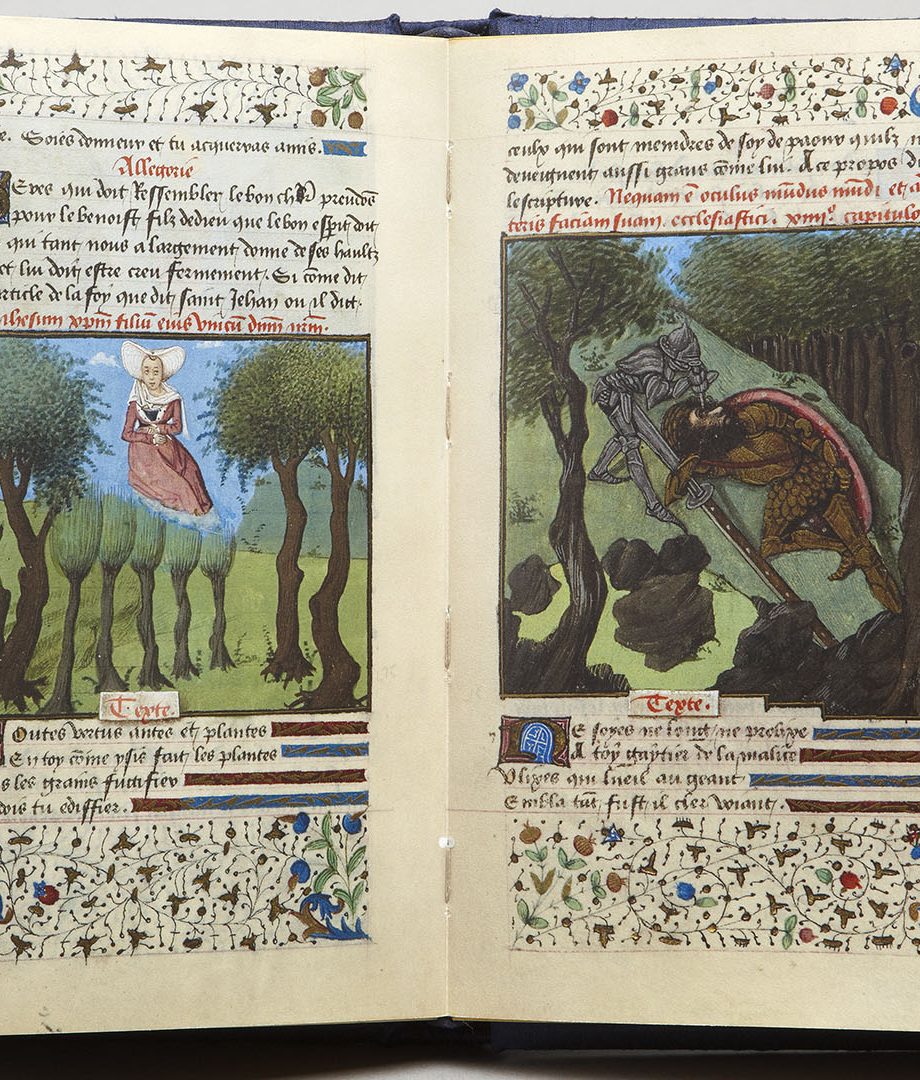 Soies donneur et tu acquerras amis.
Allegorie
qui doit Ressembler le bon prendons
pour le benoist filz de dieu que le bon esprit doit
qui tant nous a largement donne de ses haultz
et lui doit estre creu fermement. Si cōme dit
article de la foy que dit saint Jehan ou il dit.
ihesum xpm̄ filiū eius vnicū dnm̄ nrm̄.
Texte.
Outes vertus antes et plantes
En toy cōme ysis fait les plantes
les grains fructifier
dois tu ediffier.
ceulx qui sont mendres de soy de paour quilz
deueignent aussi grans cōme lui. A ce propos
lescripture. Nequam ē oculus
faciam suam. ecclesiastici. xiiii.º capitulo
Texte.
E soyes ne long ne prolixe
A toy gaytier de la malice
Vlixes qui lueil au geant
Embla tāt fust il cler voiant.